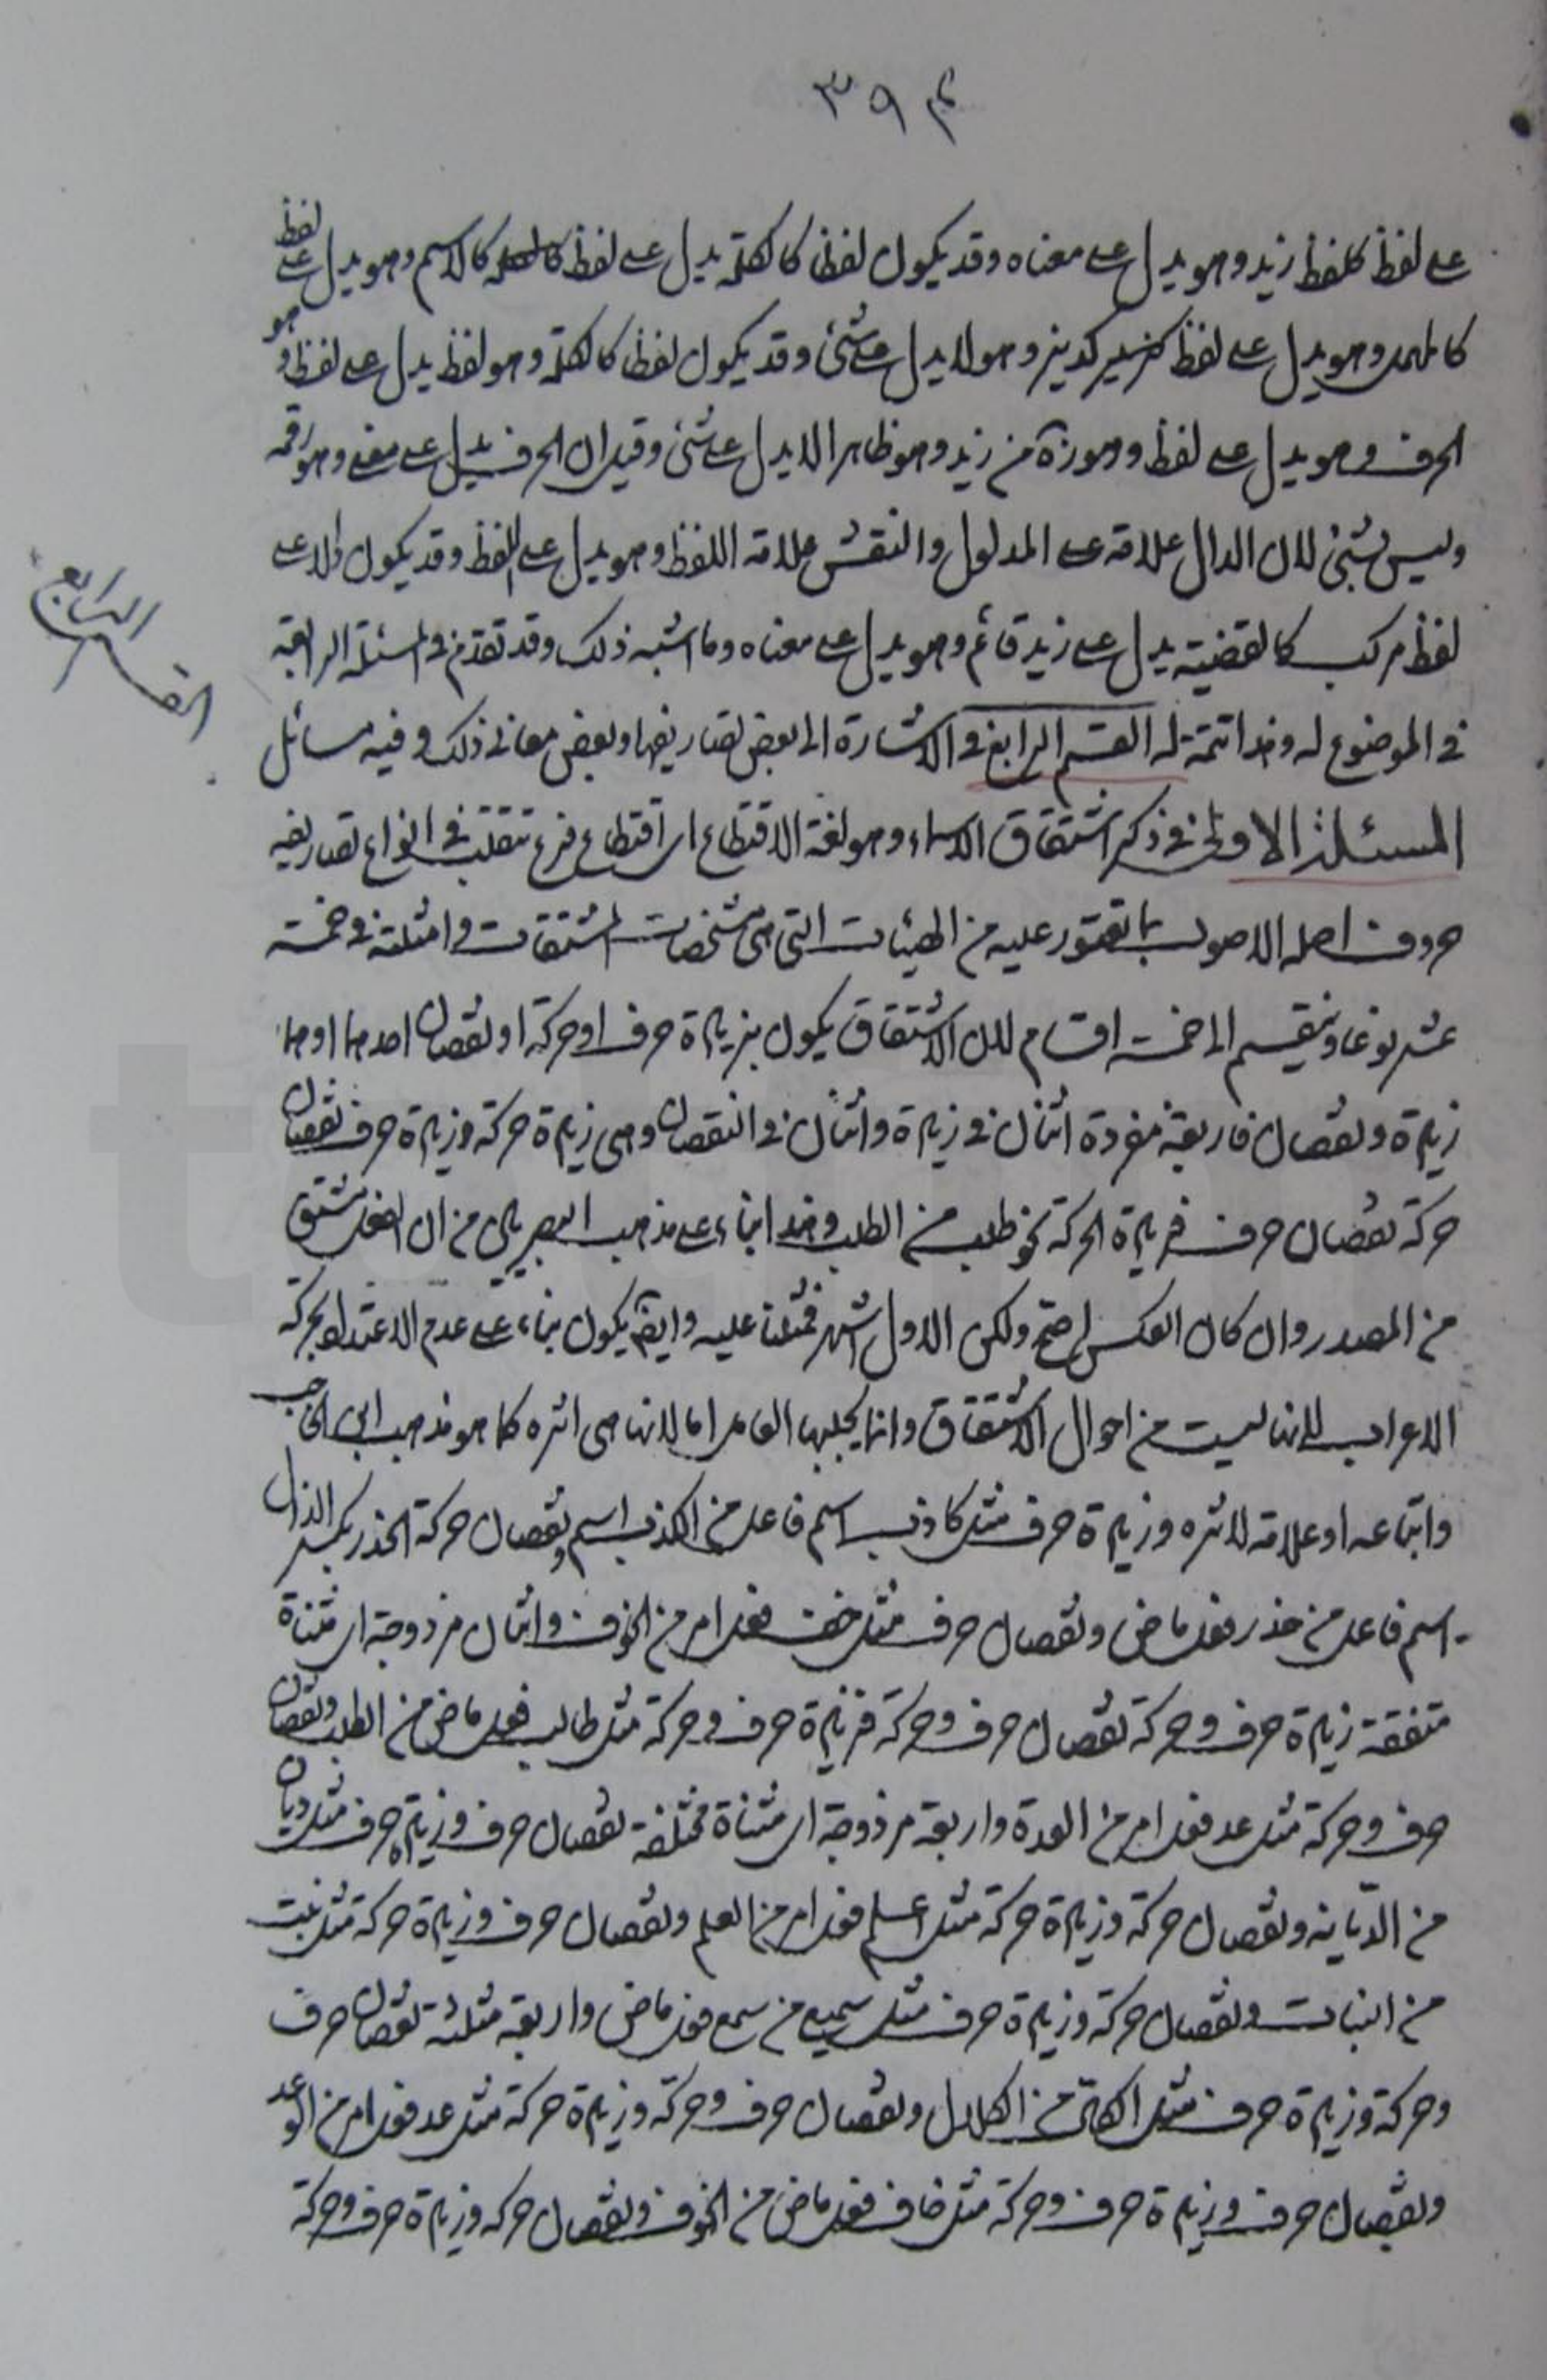 ٣٩٤
على لفظ كلفظ زيد وهو يدل على معناه وقد يكون لفظا كالكلمة يدل على لفظ كالاسم وهو يدل على لفظ
كالمهمل وهو يدل على لفظ كديز وهو لا يدل على شئ وقد يكون لفظا كالكلمة وهو لفظ يدل على لفظ وهو
الحرف وهو يدل على لفظ وهو زه من زيد وهو ظاهرا لا يدل على شئ وقيل ان الحرف يدل على معنى وهو رقمه
وليس بشئ لان الدال علامة على المدلول والنقش علامة اللفظ وهو يدل على اللفظ وقد يكون دالا على
لفظ مركب كالقضية يدل على زيد قائم وهو يدل على معناه وما اشبه ذلك وقد تقدم في المسئلة الرابعة
في الموضوع له وهذا تتمة له القسم الرابع في الاشارة الى بعض تصاريفها وبعض معاني ذلك وفيه مسائل
القسم الرابع
المسئلة الاولى في ذكر اشتقاق الاسماء وهو لغة الاقتطاع اى اقتطاع فرع تتقلب في انواع تصاريفه
حروف اصله الاصول بما تعتور عليه من الهيئات التى هى مشخصات المشتقات وامثلته في خمسة
عشر نوعا وينقسم الى خمسة اقسام لان الاشتقاق يكون بزيادة حرف او حركة او نقصان احدهما او هما
زيادة ونقصان فاربعة مفردة اثنان في زيادة واثنان في النقصان وهى زيادة حركة وزيادة حرف نقصان
حركة نقصان حرف فزيادة الحركة نحو طلب من الطلب وهذا بناء على مذهب البصريين من ان الفعل مشتق
من المصدر وان كان العكس اصح ولكن الاول اشهر فمثلنا عليه وايضا يكون بناء على عدم الاعتداد بحركة
الاعراب لانها ليست من احوال الاشتقاق وانما يجلبها العامل اما لانها هى اثره كما هو مذهب ابن الحاجب
واتباعه او علامة لاثره وزيادة حرف مثل كاذب اسم فاعل من الكذب اسم ونقصان حركة الحذر بكسر الذال
اسم فاعل من حذر فعل ماض ونقصان حرف مثل خف فعل امر من الخوف واثنان مزدوجة اى مثناة
متفقة زيادة حرف وحركة نقصان حرف وحركة فزيادة حرف وحركة مثل طالب فعل ماض من الطلب ونقصان
حرف وحركة مثل عد فعل امر من العدة واربعة مزدوجة اى مثناة مختلفة نقصان حرف وزيادة حرف مثل ديان
من الديانه ونقصان حركة وزيادة حركة مثل اعلم فعل امر من العلم ونقصان حرف وزيادة حركة مثل نبت
من النبات ونقصان حركة وزيادة حرف مثل سميع من سمع فعل ماض واربعة مثلثة نقصان حرف
وحركة وزيادة حرف مثل اكال من الكلال ونقصان حرف وحركة وزيادة حركة مثل عد فعل امر من الوعد
ونقصان حرف وزيادة حرف وحركة مثل خاف فعل ماض من الخوف ونقصان حركه وزيادة حرف وحركة